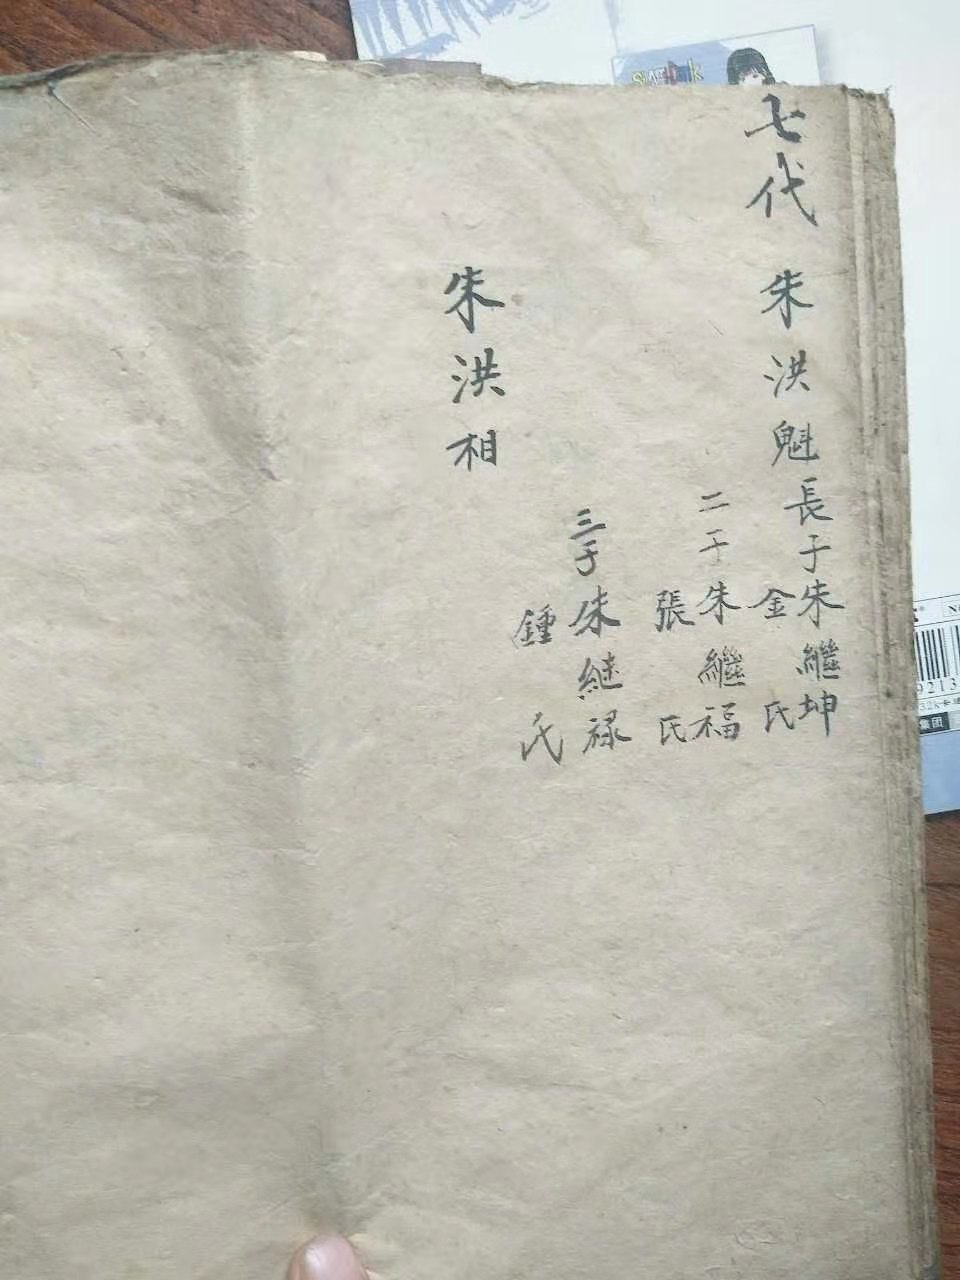 七代
朱洪魁
長子朱繼坤
金氏
二子朱繼福
張氏
三子朱継禄
鍾氏
朱洪相
9213
集团